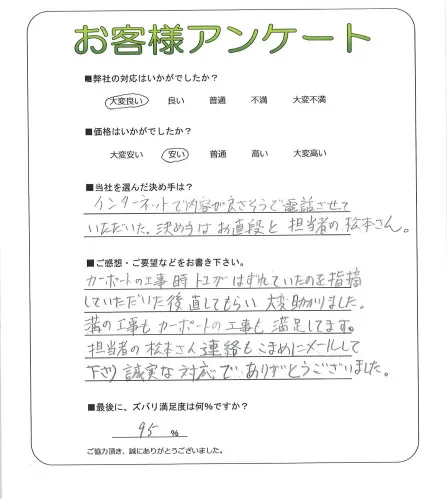 お客様アンケート
■弊社の対応はいかがでしたか?
大変良い 良い 普通 不満 大変不満
■価格はいかがでしたか?
大変安い 安い 普通 高い 大変高い
■当社を選んだ決め手は?
インターネットで内容が良さそうで電話させて
いただいた。決め手はお値段と担当者の松本さん。
■ご感想・ご要望などをお書き下さい。
カーポートの工事時トユがはずれていたのを指摘
していただいた後直してもらい大変助かりました。
溝の工事もカーポートの工事も満足してます。
担当者の松本さん連絡もこまめにメールして
下さり誠実な対応でありがとうございました。
■最後に、ズバリ満足度は何%ですか?
95 %
ご協力頂き、誠にありがとうございました。